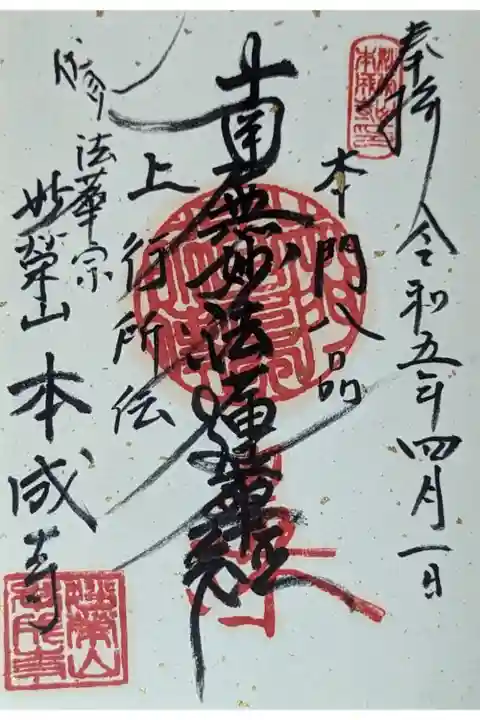 奉拝
令和五年四月一日
本門八品
南無妙法蓮華経
上行所伝
法華宗
妙榮山
本成寺
妙榮山
本成寺